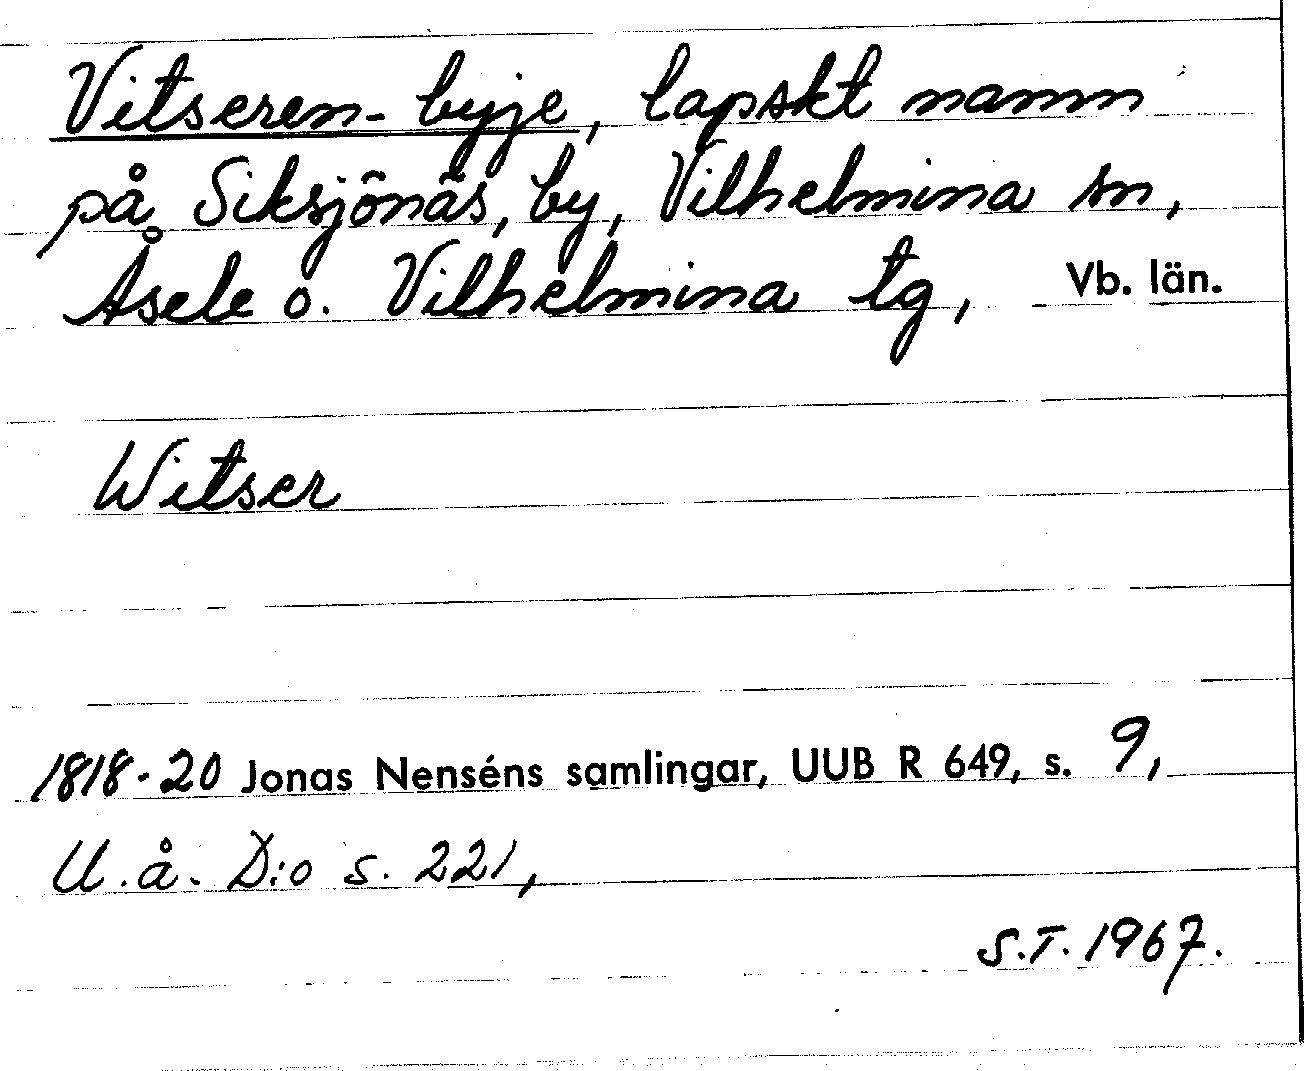 Vitseren-byje, lapskt namn
på Siksjönäs, by, Vilhelmina sn,
Åsele o. Vilhelmina tg, Vb. län.
Witser
1818-20 Jonas Nenséns samlingar, UUB R 649, s. 9,
U.å. D:o s. 221,
S.T. 1967.